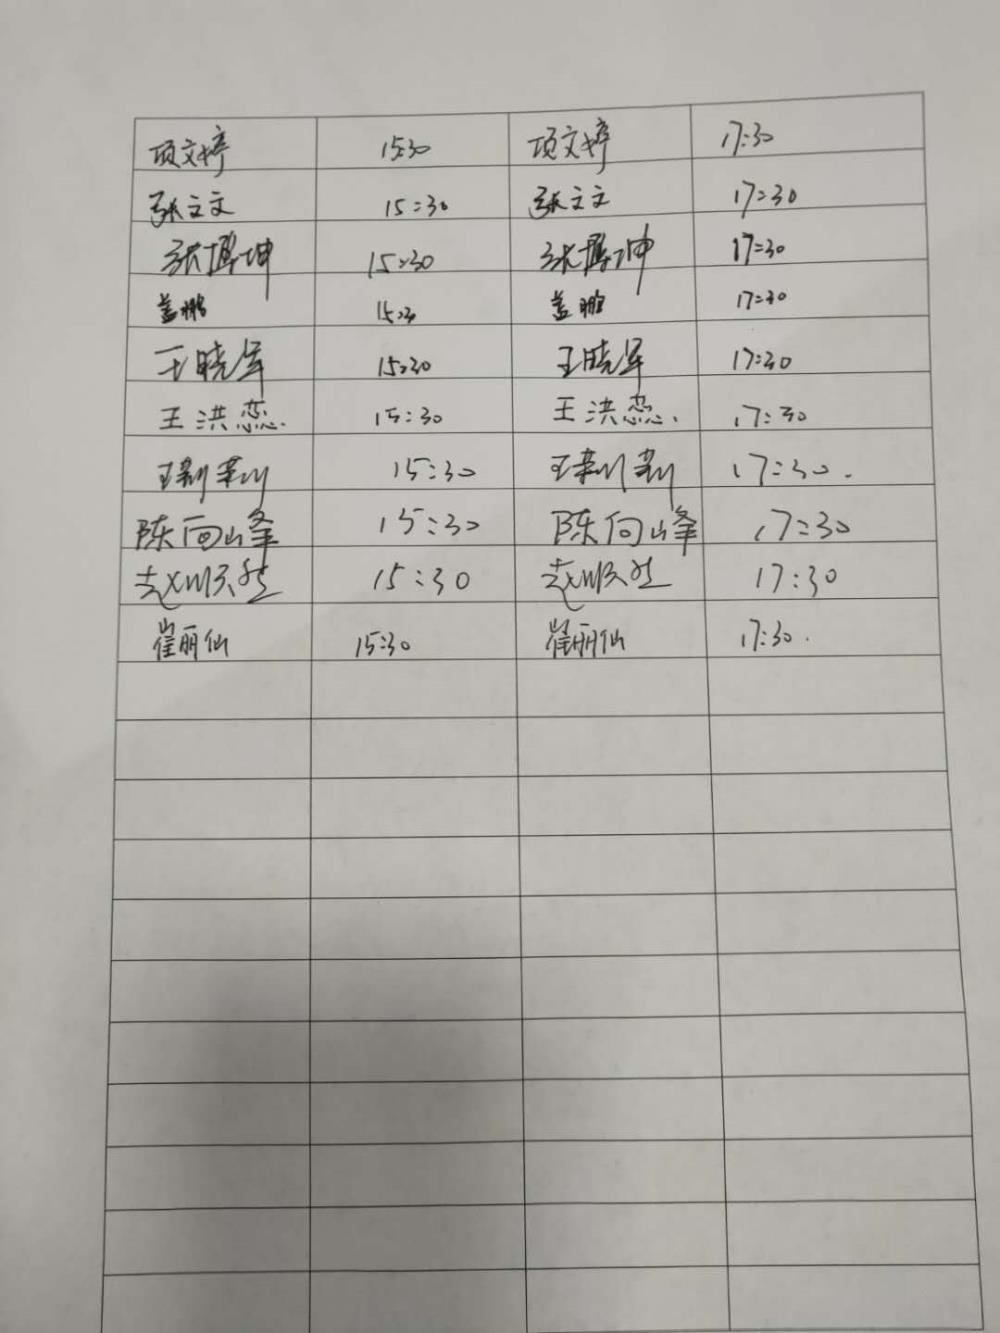 项文婷 15:30 项文婷 17:30
张文文 15:30 张文文 17:30
张博坤 15:30 张博坤 17:30
盖鹏 15:3 盖鹏 17:30
王晓军 15:30 王晓军 17:30
王洪恋. 15:30 王洪恋. 17:30
王 15:30 王 17:30.
陈向峰 15:30 陈向峰 17:30
赵顺 15:30 赵顺 17:30
崔丽仙 15:30 崔丽仙 17:30.